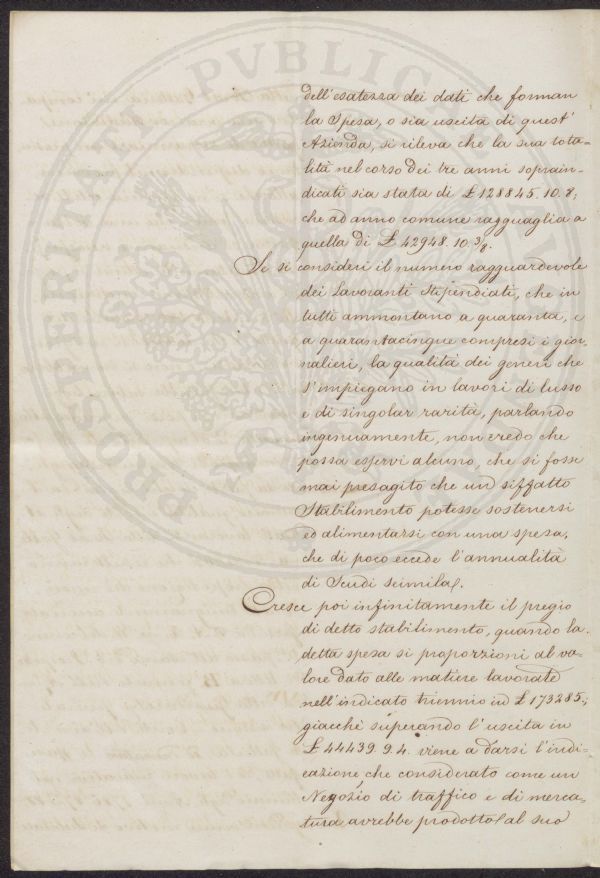 dell'esatezza dei dati che forman
la Spesa, o sia uscita di quest'
Azienda, si rileva che la sua tota=
lità nel corso dei tre anni soprain=
dicati sia stata di £ 128845. 10. 8;
che ad anno comune ragguaglia a
quella di £ 42948. 10. 3/8.
Se si consideri il numero ragguardevole
dei Lavoranti Stipendiati, che in
tutti ammontano a quaranta, e
a quarantacinque compresi i gior=
nalieri, la qualità dei generi che
s'impiegano in lavori di lusso
e di singolar rarità, parlando
ingenuamente, non credo che
possa esservi alcuno, che si fosse
mai presagito che un siffatto
Stabilimento potesse sostenersi
ed alimentarsi con una spesa,
che di poco eccede l'annualità
di Scudi seimila.
Cresce poi infinitamente il pregio
di detto stabilimento, quando la
detta spesa si proporzioni al va=
lore dato alle matiere lavorate
nell'indicato triennio in £ 173285.;
giacchè superando l'uscita in
£ 44439. 9. 4. viene a darsi l'indi=
cazione, che considerato come un
Negozio di traffico e di merca=
tura avrebbe prodotto al suo
PROSPERITATI PVBLICAE